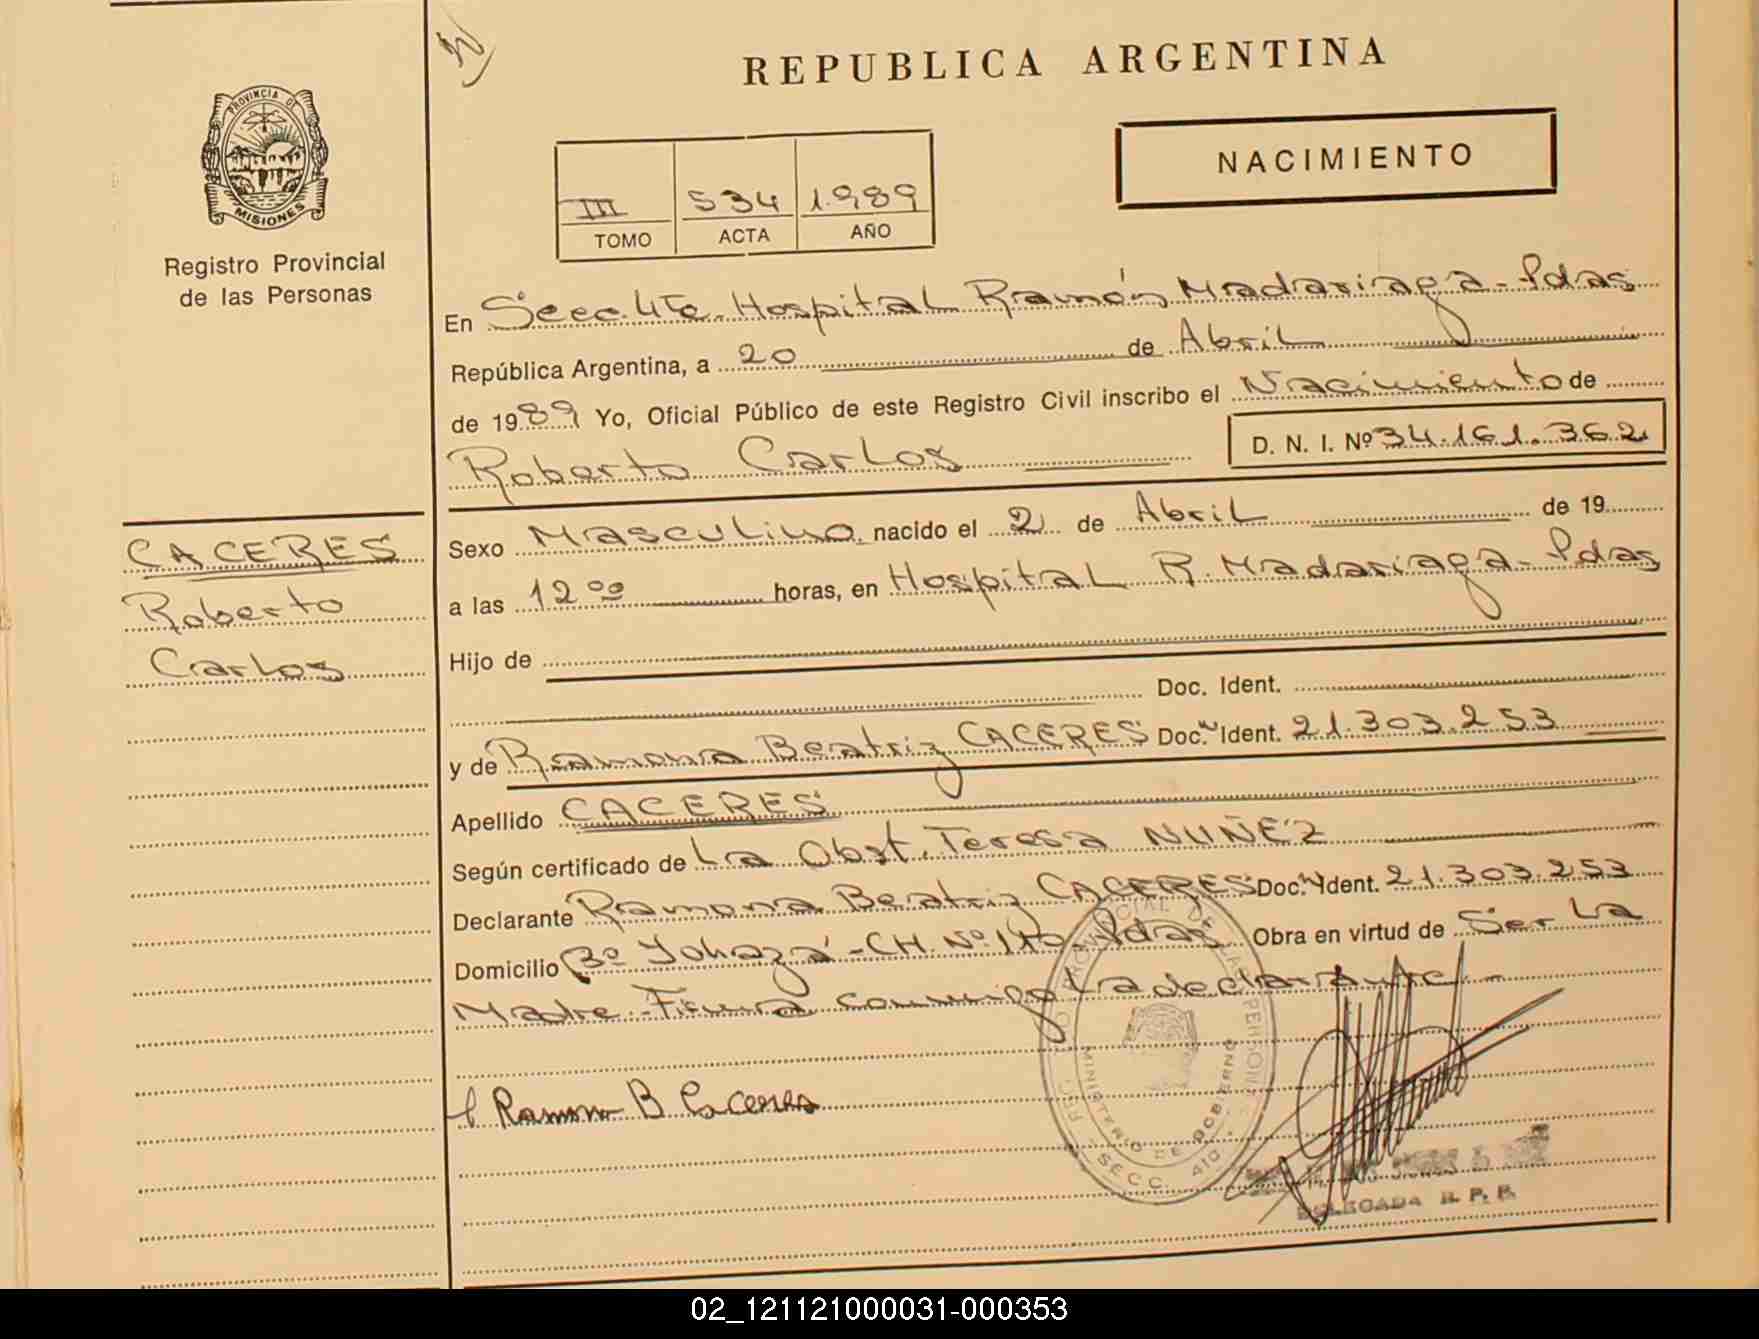 REPUBLICA ARGENTINA
PROVINCIA DE
MISIONES
Registro Provincial
de las Personas
NACIMIENTO
III 534 1.989
TOMO ACTA AÑO
En Secc. 4ta. Hospital Ramón Madariaga - Pdas
República Argentina, a 20 de Abril
de 1989 Yo, Oficial Público de este Registro Civil inscribo el Nacimiento de
Roberto Carlos D. N. I. Nº 34.161.362
CACERES
Roberto
Carlos
Sexo Masculino nacido el 2 de Abril de 19
a las 12 oo horas, en Hospital R. Madariaga - Pdas
Hijo de
Doc. Ident.
y de Ramona Beatriz CACERES Doc. Ident. 21.303.253
Apellido CACERES
Según certificado de La Obst. Teresa NUÑEZ
Declarante Ramona Beatriz CACERES Doc. Ident. 21.303.253
Domicilio Bº - CH. Nº - Pdas Obra en virtud de Ser La
Madre - Firma conmigo La declarante -
Ramona B Caceres
MINISTERIO DE GOBIERNO
SECC. 4
DELEGADA R. P. P.
02_121121000031-000353